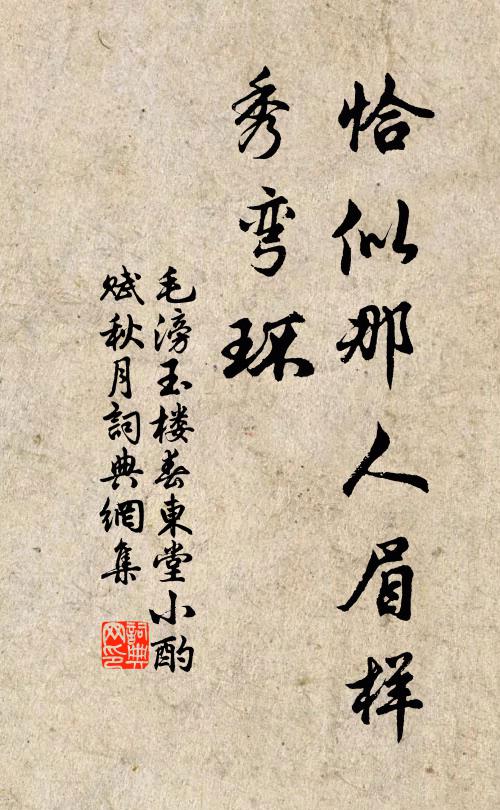 恰似那人眉样
秀弯环
毛滂玉楼春東堂小酌
赋秋月詞典網集
詞典网印